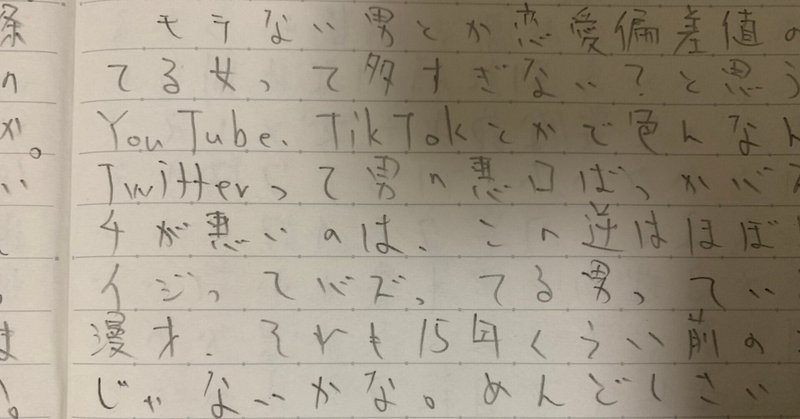 モテない男とか恋愛偏差値の
てる女って多すぎない？と思う
YouTube、TikTokとかで色んな
Twitterって男の悪口ばっかバズ
チが悪いのは、この逆はほぼ
イジってバズってる男ってい
漫才、それも15年くらい前の
じゃないかな。めんどくさい
条
か。